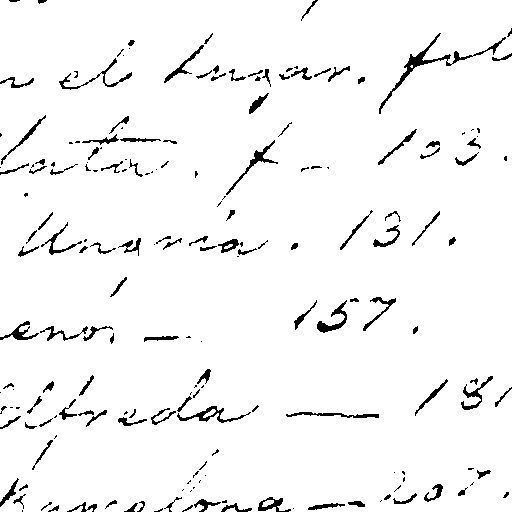 el Lugar. fol
lata. f - 103.
Ungria. 131.
enór — 157.
Olfreda — 181
Barcelona — 207.